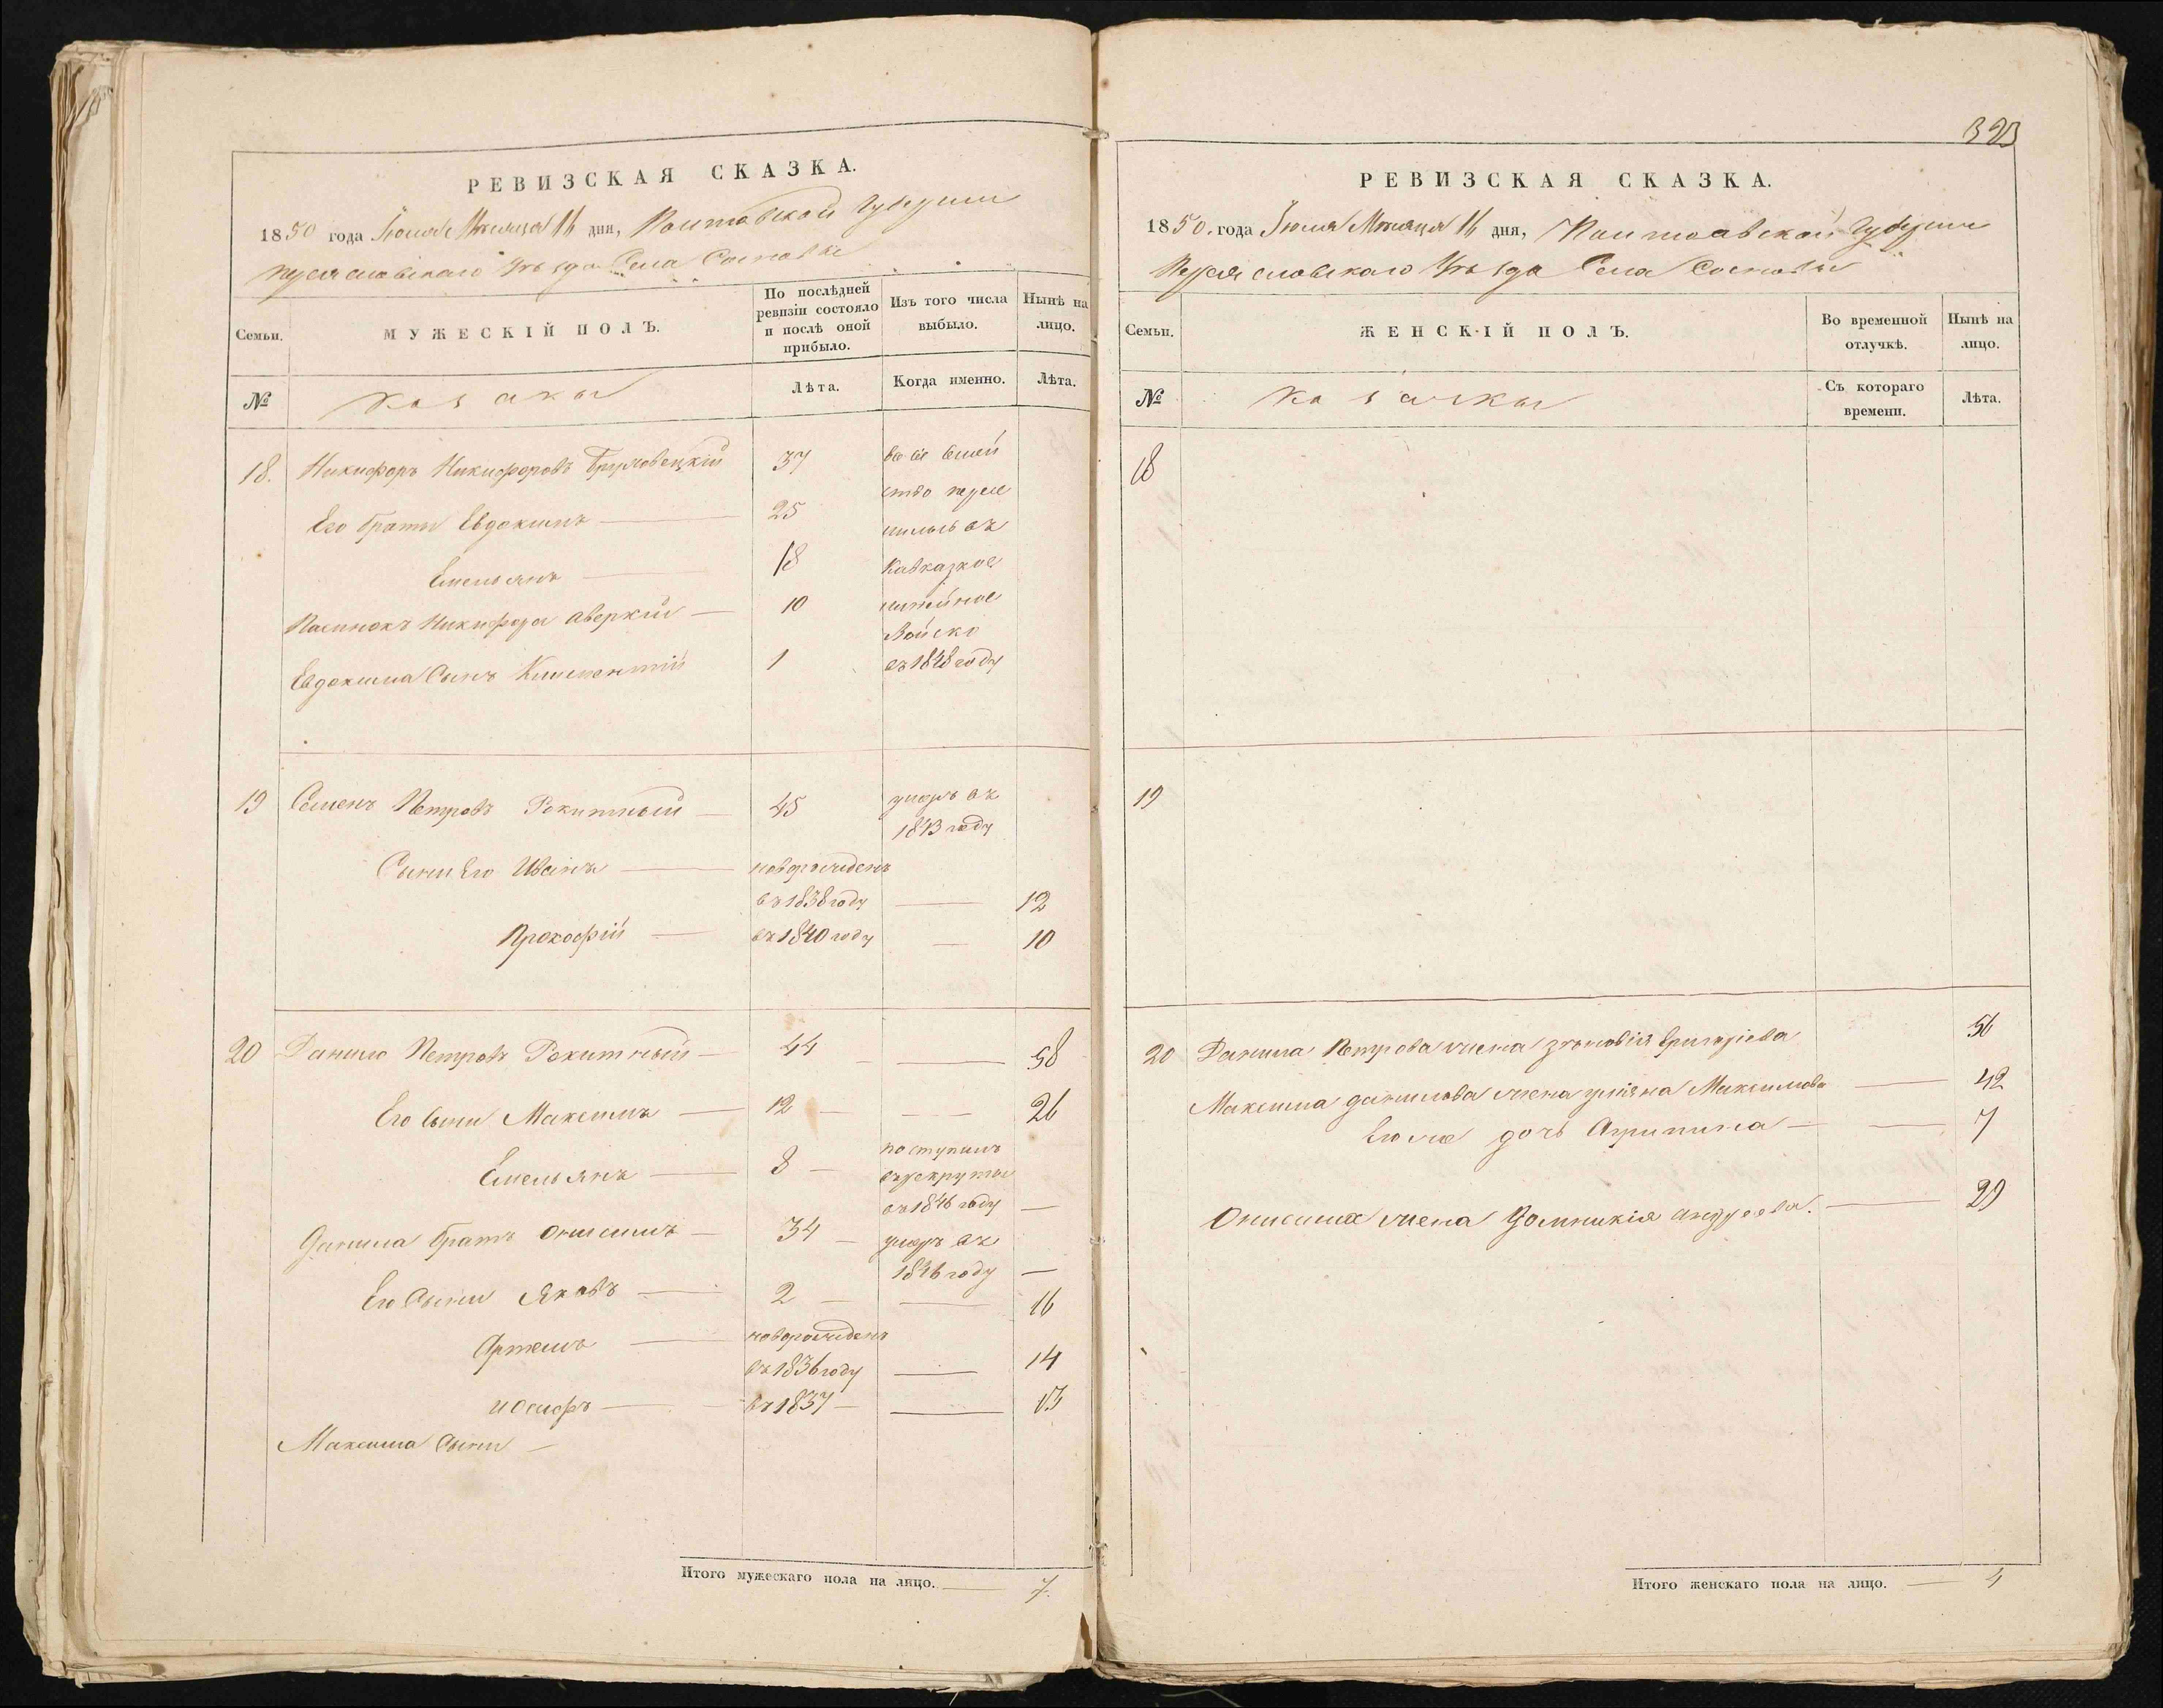 РЕВИЗСКАЯ СКАЗКА.
1850 года Іюля Мѣсяца 16 дня, Полтавской Губерніи
Переяславскаго Уѣзда Села Сосновы
Семьи.
МУЖЕСКІЙ ПОЛЪ.
По послѣдней ревизіи состояло и послѣ оной прибыло.
Изъ того числа выбыло.
Нынѣ на лицо.
№
козаки
Лѣта.
Когда именно.
Лѣта.
18. Никифоръ Никифоровъ 37
Его братъ Евдокимъ — 25
Емельянъ — 18
Пасинокъ Никифора Аверкій — 10
Евдокима Сынъ Климентій 1
пересе
лились въ
Кавказкое
линейное
Войско
въ 1848 году
19 Семенъ Петровъ Рокитный — 45 умеръ въ
1843 году
Сыни Его Иванъ — новорожденъ
въ 1838 году — 12
Прокофій — въ 1840 году — 10
20 Данило Петровъ Рокитный — 44 — 58
Его сыни Максимъ — 12 — 26
Емельянъ — 8 — поступилъ
въ рекруты
въ 1846 году —
Данила братъ Онисимъ — 34 — умеръ въ
1846 году —
Его Сыни Яковъ — 2 — 16
Артемъ — новорожденъ
въ 1836 году — 14
Иосифъ — въ 1837 — 13
Максима Сыни —
Итого мужескаго пола на лицо. — 7.
323
РЕВИЗСКАЯ СКАЗКА.
1850. года Іюля Мѣсяца 16 дня, Полтавской Губерніи
Переяславскаго Уѣзда Села Сосновы
Семьи.
ЖЕНСКІЙ ПОЛЪ.
Во временной отлучкѣ.
Нынѣ на лицо.
№
козачки
Съ котораго времени.
Лѣта.
18
19
20 Данила Петрова жена Зѣновія Григорієва 56
Максима Данилова жена Уліяна Максимова — 42
Его же дочь Агрипина — 7
Онисима жена Домникія Андреева. — 29
Итого женскаго пола на лицо. — 4